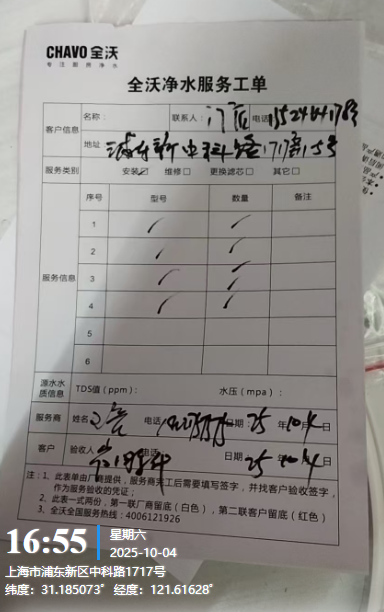 CHAVO 全沃
专注厨房净水
全沃净水服务工单
客户信息 名称： 联系人： 门店 电话
地址 中科路1717弄15号
服务类别 安装☑ 维修□ 更换滤芯□ 其它□
服务信息 序号 型号 数量 备注
1
2
3
4
5
6
源水水质信息 TDS值（ppm）： 水压（mpa）：
服务商 姓名 电话 日期：25年10.4日
客户 验收人 电话 日期：25 10 4日
注：1、此表单由厂商提供，服务商完工后需要填写签字，并找客户验收签字，
作为服务验收的凭证；
2、此表一式两份，第一联厂商留底（白色），第二联客户留底（红色）
3、全沃全国服务热线：4006121926
16:55 星期六
2025-10-04
上海市浦东新区中科路1717号
纬度：31.185073° 经度：121.61628°